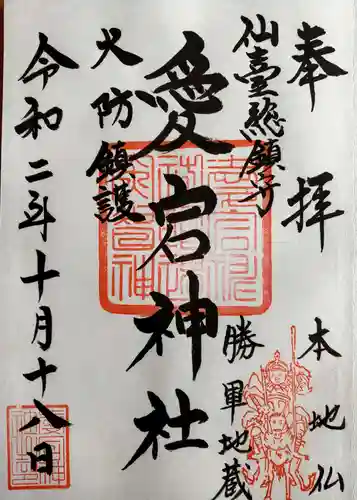 奉拝
本地仏
仙臺総鎮守
勝軍地蔵
愛宕神社
火防鎮護
令和二年十月十八日